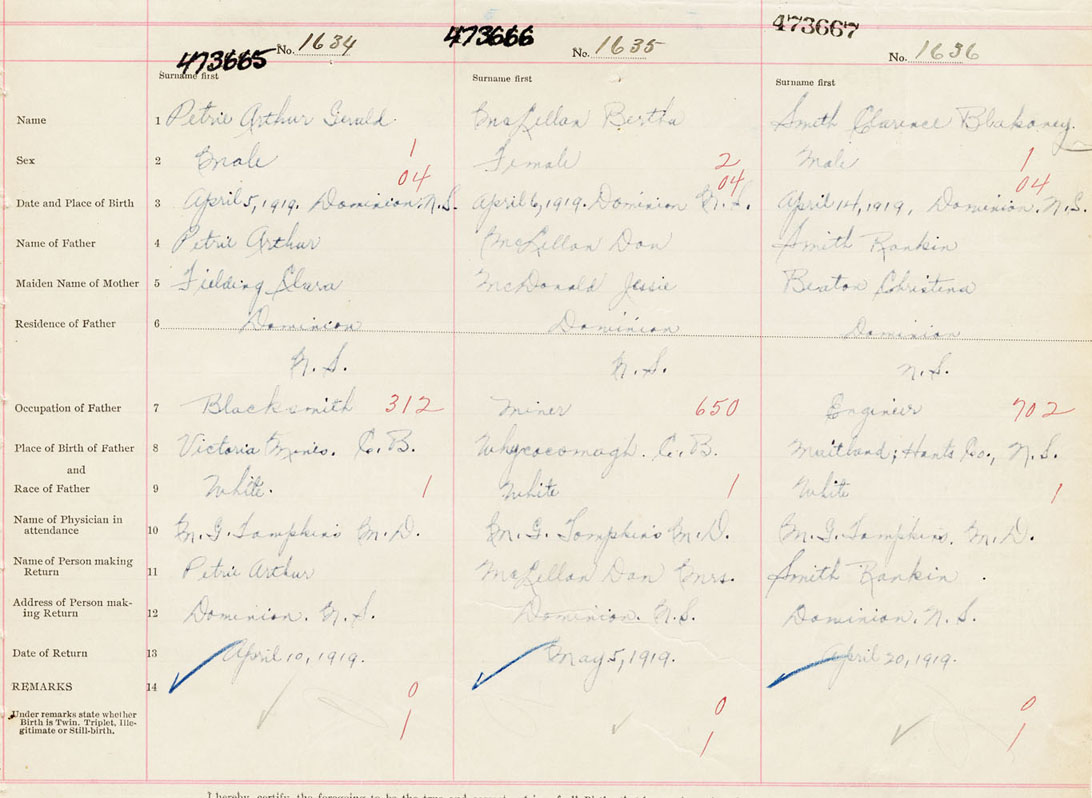 473665 No. 1634 473666 No. 1635 473667 No. 1636
Surname first Surname first Surname first
Name 1 Petrie Arthur Gerald McLellan Bertha Smith Clarence Blakeney
Sex 2 Male 1 Female 2 Male 1
04 04 04
Date and Place of Birth 3 April 5, 1919. Dominion. N.S. April 6, 1919. Dominion N.S. April 14, 1919, Dominion. N.S.
Name of Father 4 Petrie Arthur McLellan Dan Smith Rankin
Maiden Name of Mother 5 Fielding Clara McDonald Jessie Christena
Residence of Father 6 Dominion Dominion Dominion
N.S. N.S. N.S.
Occupation of Father 7 Blacksmith 312 Miner 650 Engineer 702
Place of Birth of Father 8 Victoria Mines. C.B. Whycocomagh. C.B. Maitland; Hants Co., N.S.
and
Race of Father 9 White. 1 White 1 White 1
Name of Physician in
attendance 10 M.G. Tompkins M.D. M.G. Tompkins M.D. M.G. Tompkins. M.D.
Name of Person making
Return 11 Petrie Arthur McLellan Dan Mrs. Smith Rankin.
Address of Person mak-
ing Return 12 Dominion. N.S. Dominion. N.S. Dominion. N.S.
Date of Return 13 April 10, 1919. May 5, 1919. April 20, 1919.
REMARKS 14 0 0 0
Under remarks state whether
Birth is Twin, Triplet, Ille-
gitimate or Still-birth. 1 1 1
I hereby certify the foregoing to be the true and